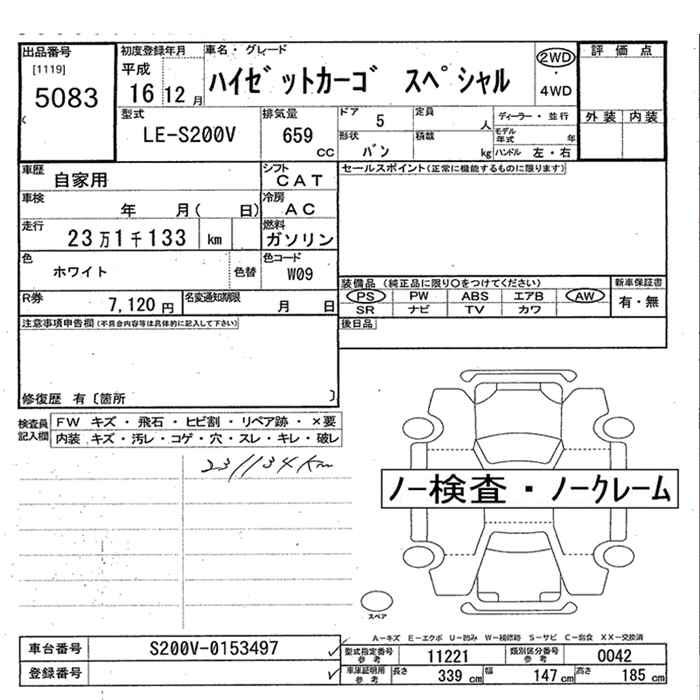 出品番号
[1119]
5083
初度登録年月
平成
16 12 月
車名・グレード
ハイゼットカーゴ スペシャル
2WD
・
4WD
評価点
外装 内装
型式
LE-S200V
排気量
659
CC
ドア 5
形状
バン
定員 人
積載 kg
ディーラー・並行
モデル年式 年
ハンドル 左・右
車歴
自家用
シフト
CAT
車検
年 月( 日)
冷房
AC
走行
23万1千133 km
燃料
ガソリン
色
ホワイト
色替
色コード
W09
R券
7,120 円
名変通知期限
月 日
セールスポイント(正常に機能するものに限ります)
装備品(純正品に限り○をつけてください)
新車保証書
PS PW ABS エアB AW
SR ナビ TV カワ
有・無
後日品
注意事項申告欄(不具合内容等は具体的に記入して下さい)
修復歴 有〔箇所 〕
検査員
記入欄
FW キズ・飛石・ヒビ割・リペア跡・×要
内装 キズ・汚レ・コゲ・穴・スレ・キレ・破レ
231134km
ノー検査・ノークレーム
スペア
A-キズ E-エクボ U-凹み W-補修跡 S-サビ C-腐食 XX-交換済
車台番号
S200V-0153497
登録番号
型式指定番号
参考
11221
類別区分番号
参考
0042
車庫証明用
参考
長さ 339 cm
幅 147 cm
高さ 185 cm